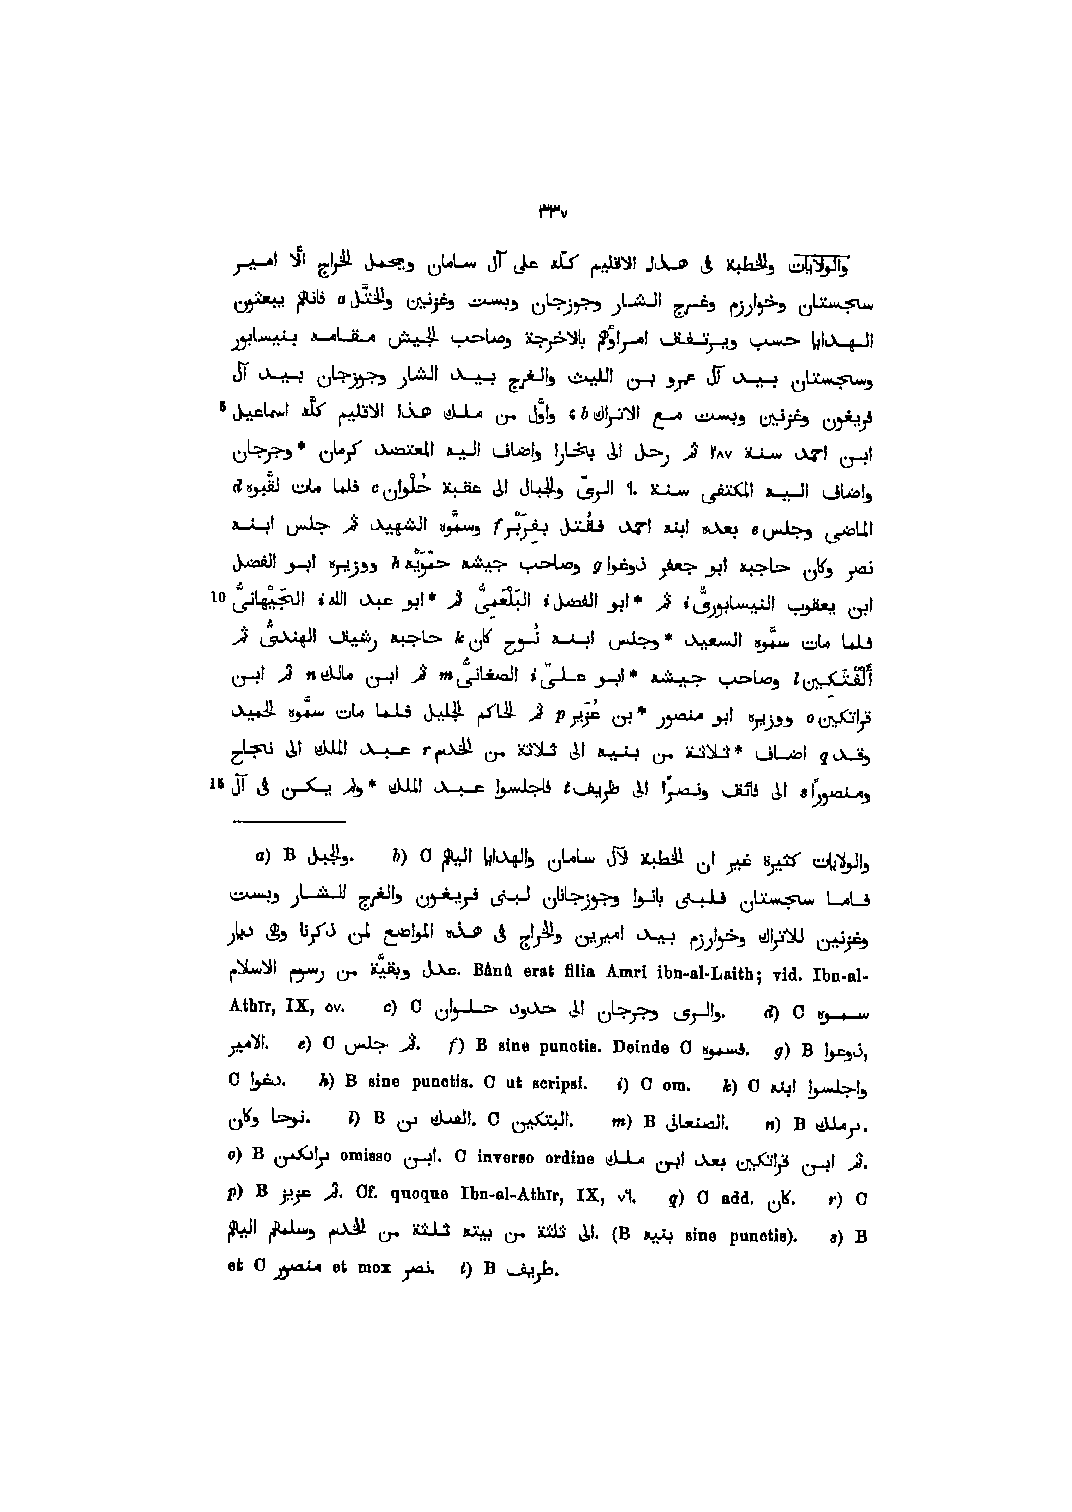 ٣٣٧
والولايات والخطبة فى هذا الاقليم كلّه على آل سامان ويحمل الخراج الّا امير
سجستان وخوارزم وغرج الشار وجوزجان وبست وغزنين والختّل a فانهم يبعثون
الهدايا حسب ويرتفق امراؤهم بالاخرجة وصاحب الجيش مقامه بنيسابور
وسجستان بيد آل عمرو بن الليث والغرج بيد الشار وجوزجان بيد آل
فريغون وغزنين وبست مع الاتراك b ۞ واوّل من ملك هذا الاقليم كلّه اسماعيل 5
ابن احمد سنة ٢٨٧ ثم رحل الى بخارا واضاف اليه المعتضد كرمان *وجرجان
واضاف اليه المكتفى سنة ٩٠ الرىّ والجبال الى عقبة حُلْوان c فلما مات لقّبوه d
الماضى وجلس e بعده ابنه احمد فقُتل بفِرَبْر f وسمّوه الشهيد ثم جلس ابنه
نصر وكان حاجبه ابو جعفر ذوغوا g وصاحب جيشه حمّويْه h ووزيره ابو الفضل
ابن يعقوب النيسابورىُّ i ثم *ابو الفضل i البَلْعَمِىُّ ثم *ابو عبد الله i الجَيْهانىُّ 10
فلما مات سمّوه السعيد *وجلس ابنه نُوح كان k حاجبه رشيق الهندىُّ ثم
أَلْفْتَكِين l وصاحب جيشه *ابو علىّ i الصغانىُّ m ثم ابن مالك n ثم ابن
قراتكين o ووزيره ابو منصور *بن عُزَير p ثم الحاكم الجليل فلما مات سمّوه الحميد
وقد q اضاف *ثلاثة من بنيه الى ثلاثة من الخدم r عبد الملك الى نجاح
ومنصورًا s الى فائق ونصرًا الى ظريف t فاجلسوا عبد الملك *ولم يكن فى آل 15
a) B والجبل. b) C والولايات كثيرة غير ان الخطبة لآل سامان والهدايا اليهم
فاما سجستان فلبنى بانوا وجوزجانان لبنى فريغون والغرج للشار وبست
وغزنين للاتراك وخوارزم بيد اميرين والخراج فى هذه المواضع لمن ذكرنا وهى ديار
عدل وبقيّة من رسوم الاسلام. Bânû erat filia Amri ibn-al-Laith; vid. Ibn-al-
Athîr, IX, ٥٧. c) C والرى وجرجان الى حدود حلوان. d) C سموه
الامير. e) C ثم جلس. f) B sine punctis. Deinde C فسموه. g) B ذوعوا,
C دغوا. h) B sine punctis. C ut scripsi. i) C om. k) C واجلسوا ابنه
نوحا وكان. l) B الفىك ىن. C البتكين. m) B الصنعانى. n) B برملك.
o) B ىراىكىں omisso ابن. C inverso ordine ثم ابن قراتكين بعد ابن ملك.
p) B ثم عزيز. Cf. quoque Ibn-al-Athîr, IX, ٧٦. q) C add. كان. r) C
الى ثلثة من بيته ثلثة من الخدم وسلمهم اليهم. (B بنيه sine punctis). s) B
et C منصور et mox نصر. t) B طريف.